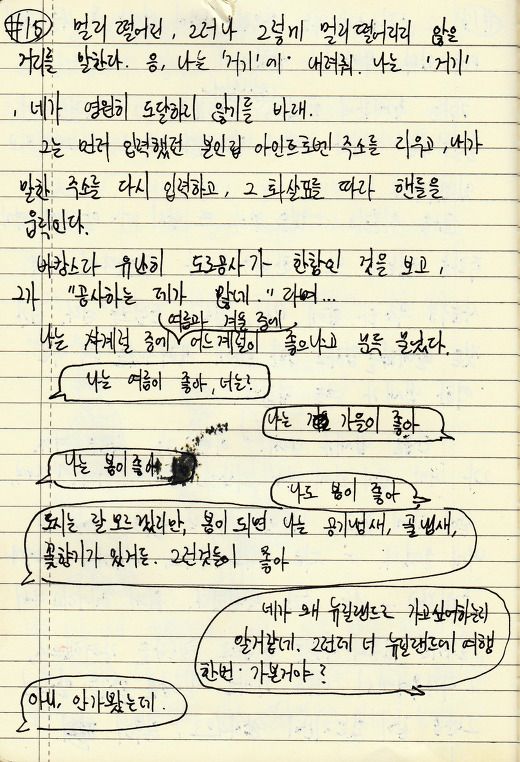 #15) 멀리 떨어진, 그러나 그렇게 멀리 떨어지지 않은
거리를 말한다. 응, 나는 '거기'에 내려줘. 나는 '거기'
, 네가 영원히 도달하지 않기를 바래.
그는 먼저 입력했던 본인집 아인트호벤 주소를 지우고, 내가
말한 주소를 다시 입력하고, 그 화살표를 따라 핸들을
움직인다.
바캉스라 유난히 도로공사가 한창인 것을 보고,
그가 "공사하는 데가 많네." 라며...
여름과 겨울 중에
나는 사계절 중에 어느계절이 좋으냐고 문득 물었다.
나는 여름이 좋아, 너는?
나는 가을이 좋아
나는 봄이좋아
나도 봄이 좋아
도시는 잘 모르겠지만, 봄이 되면 나는 공기냄새, 풀냄새,
꽃향기가 있거든. 그런것들이 좋아
네가 왜 뉴질랜드로 가고싶어하는지
알거같네. 그런데 너 뉴질랜드에 여행
한번 가본거야?
아니, 안가봤는데.